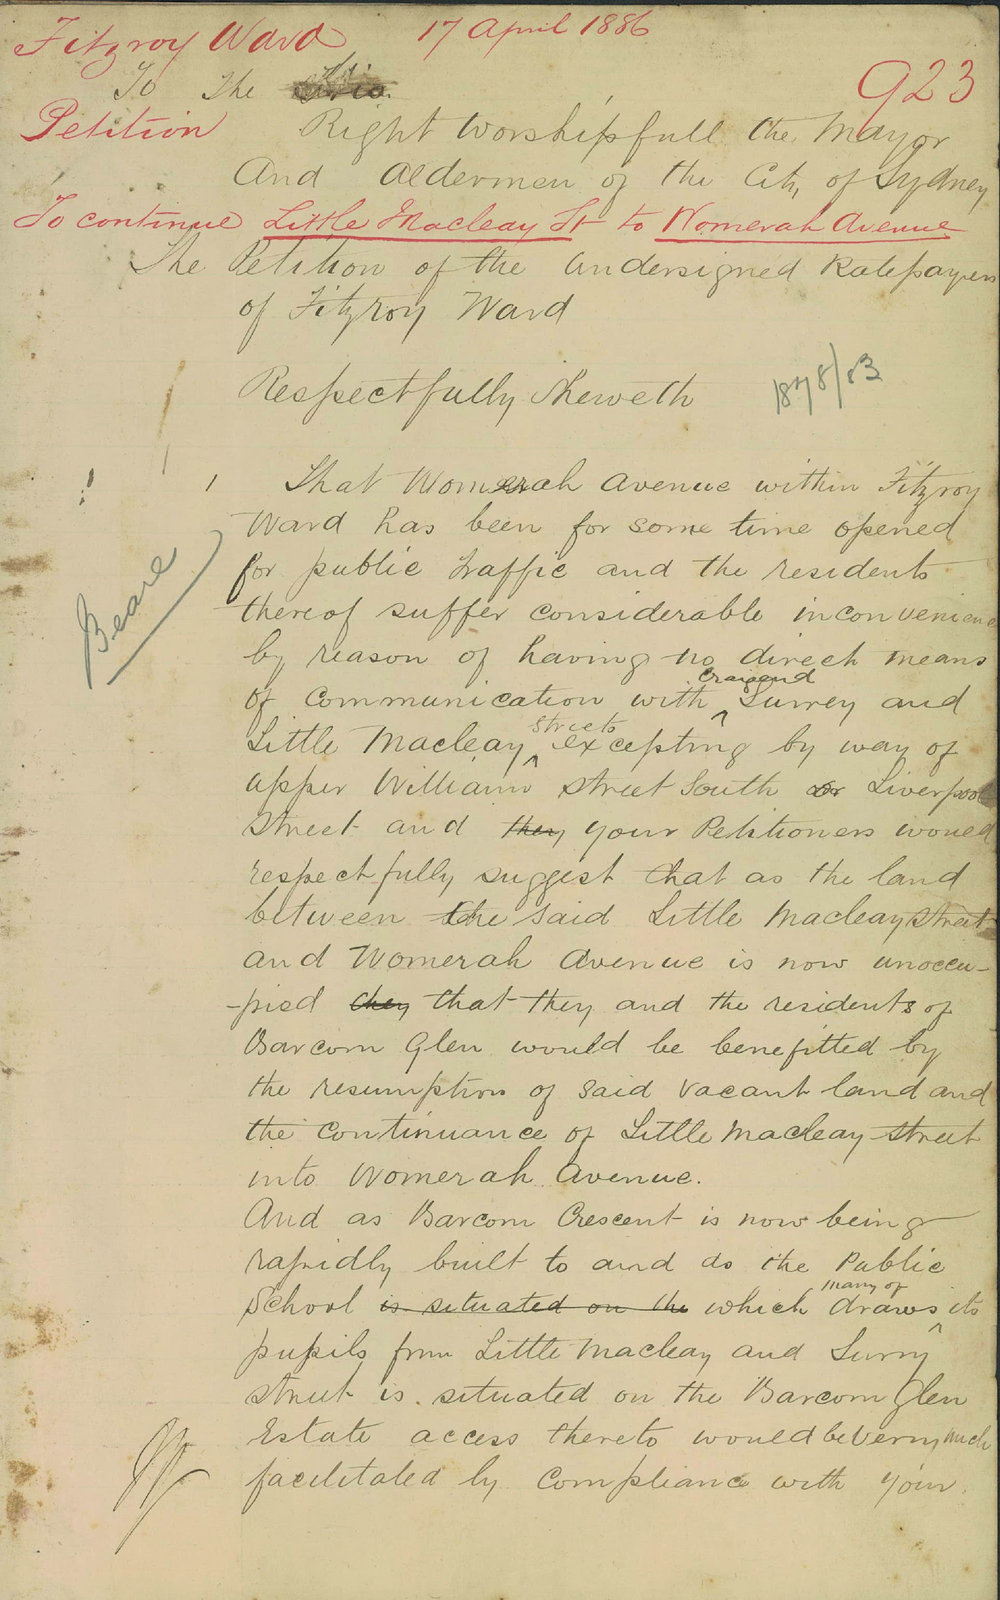 Fitzroy Ward 17 April 1886
To The
923
Petition Right Worshipfull the Mayor
And Aldermen of the City of Sydney
To continue Little Macleay St to Womerah Avenue
The Petition of the Undersigned Ratepayers
of Fitzroy Ward
Respectfully Sheweth
1878/83
1 That Womerah Avenue within Fitzroy
Ward has been for some time opened
Beare
for public traffic and the residents
thereof suffer considerable inconvenience
by reason of having no direct means
Craigend
of communication with ^ Surrey and
streets
Little Macleay ^ excepting by way of
upper William street South or Liverpool
Street and they your Petitioners would
respectfully suggest that as the land
between the said Little Macleay street
and Womerah Avenue is now unoccu-
-pied they that they and the residents of
Barcom Glen would be benefitted by
the resumption of said vacant land and
the continuance of Little Macleay street
into Womerah Avenue.
And as Barcom Crescent is now being
rapidly built to and as the Public
many of
School is situated on the which draws ^ its
pupils from Little Macleay and Surry
street is situated on the Barcom Glen
Estate access thereto would be very much
facilitated by compliance with your